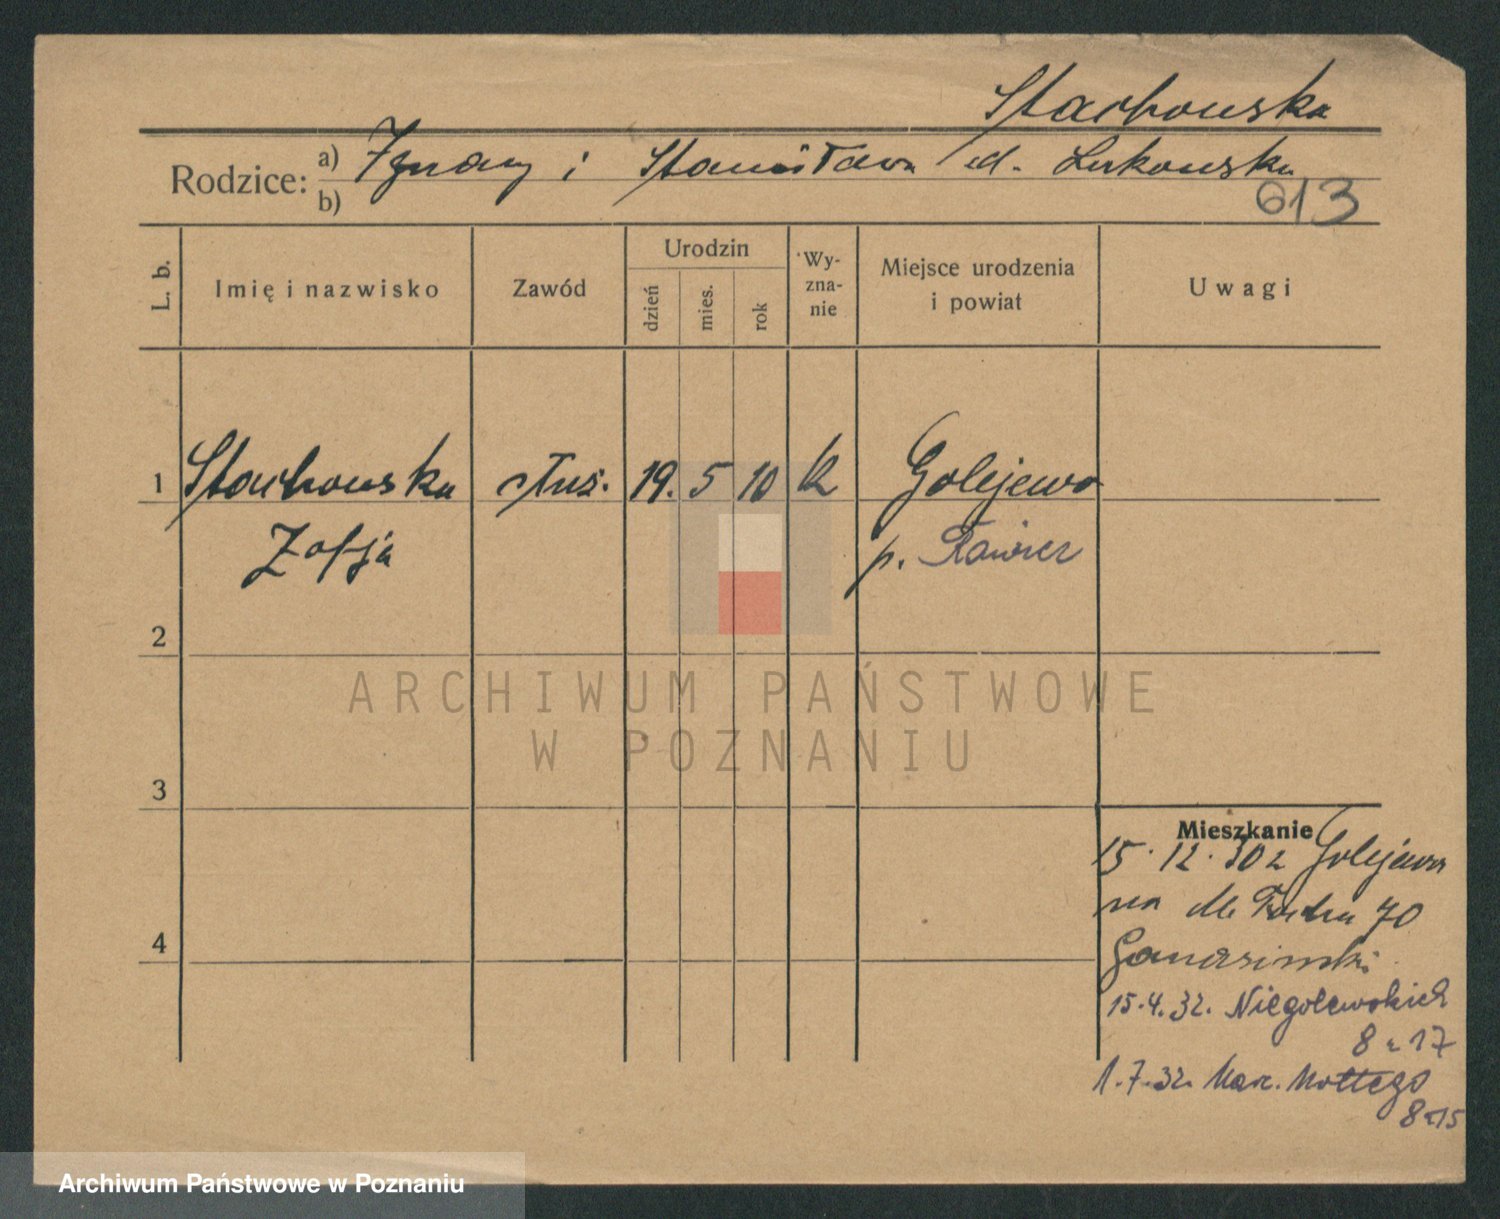 Stachowska
Rodzice: a) Ignacy i Stanisława d. Lukowska
b)
613
L. b.
Imię i nazwisko
Zawód
Urodzin
dzień
mies.
rok
Wy-
zna-
nie
Miejsce urodzenia
i powiat
Uwagi
1 Stachowska służ. 19. 5 10 k Golejewo
Zofja p. Rawicz
2
3
4
Mieszkanie
15.12.30 z Golejewa
na 70
15.4.32. Niegolewskich
8 17
1.7.32. Marc. Mottego
8 15
ARCHIWUM PAŃSTWOWE
W POZNANIU
Archiwum Państwowe w Poznaniu